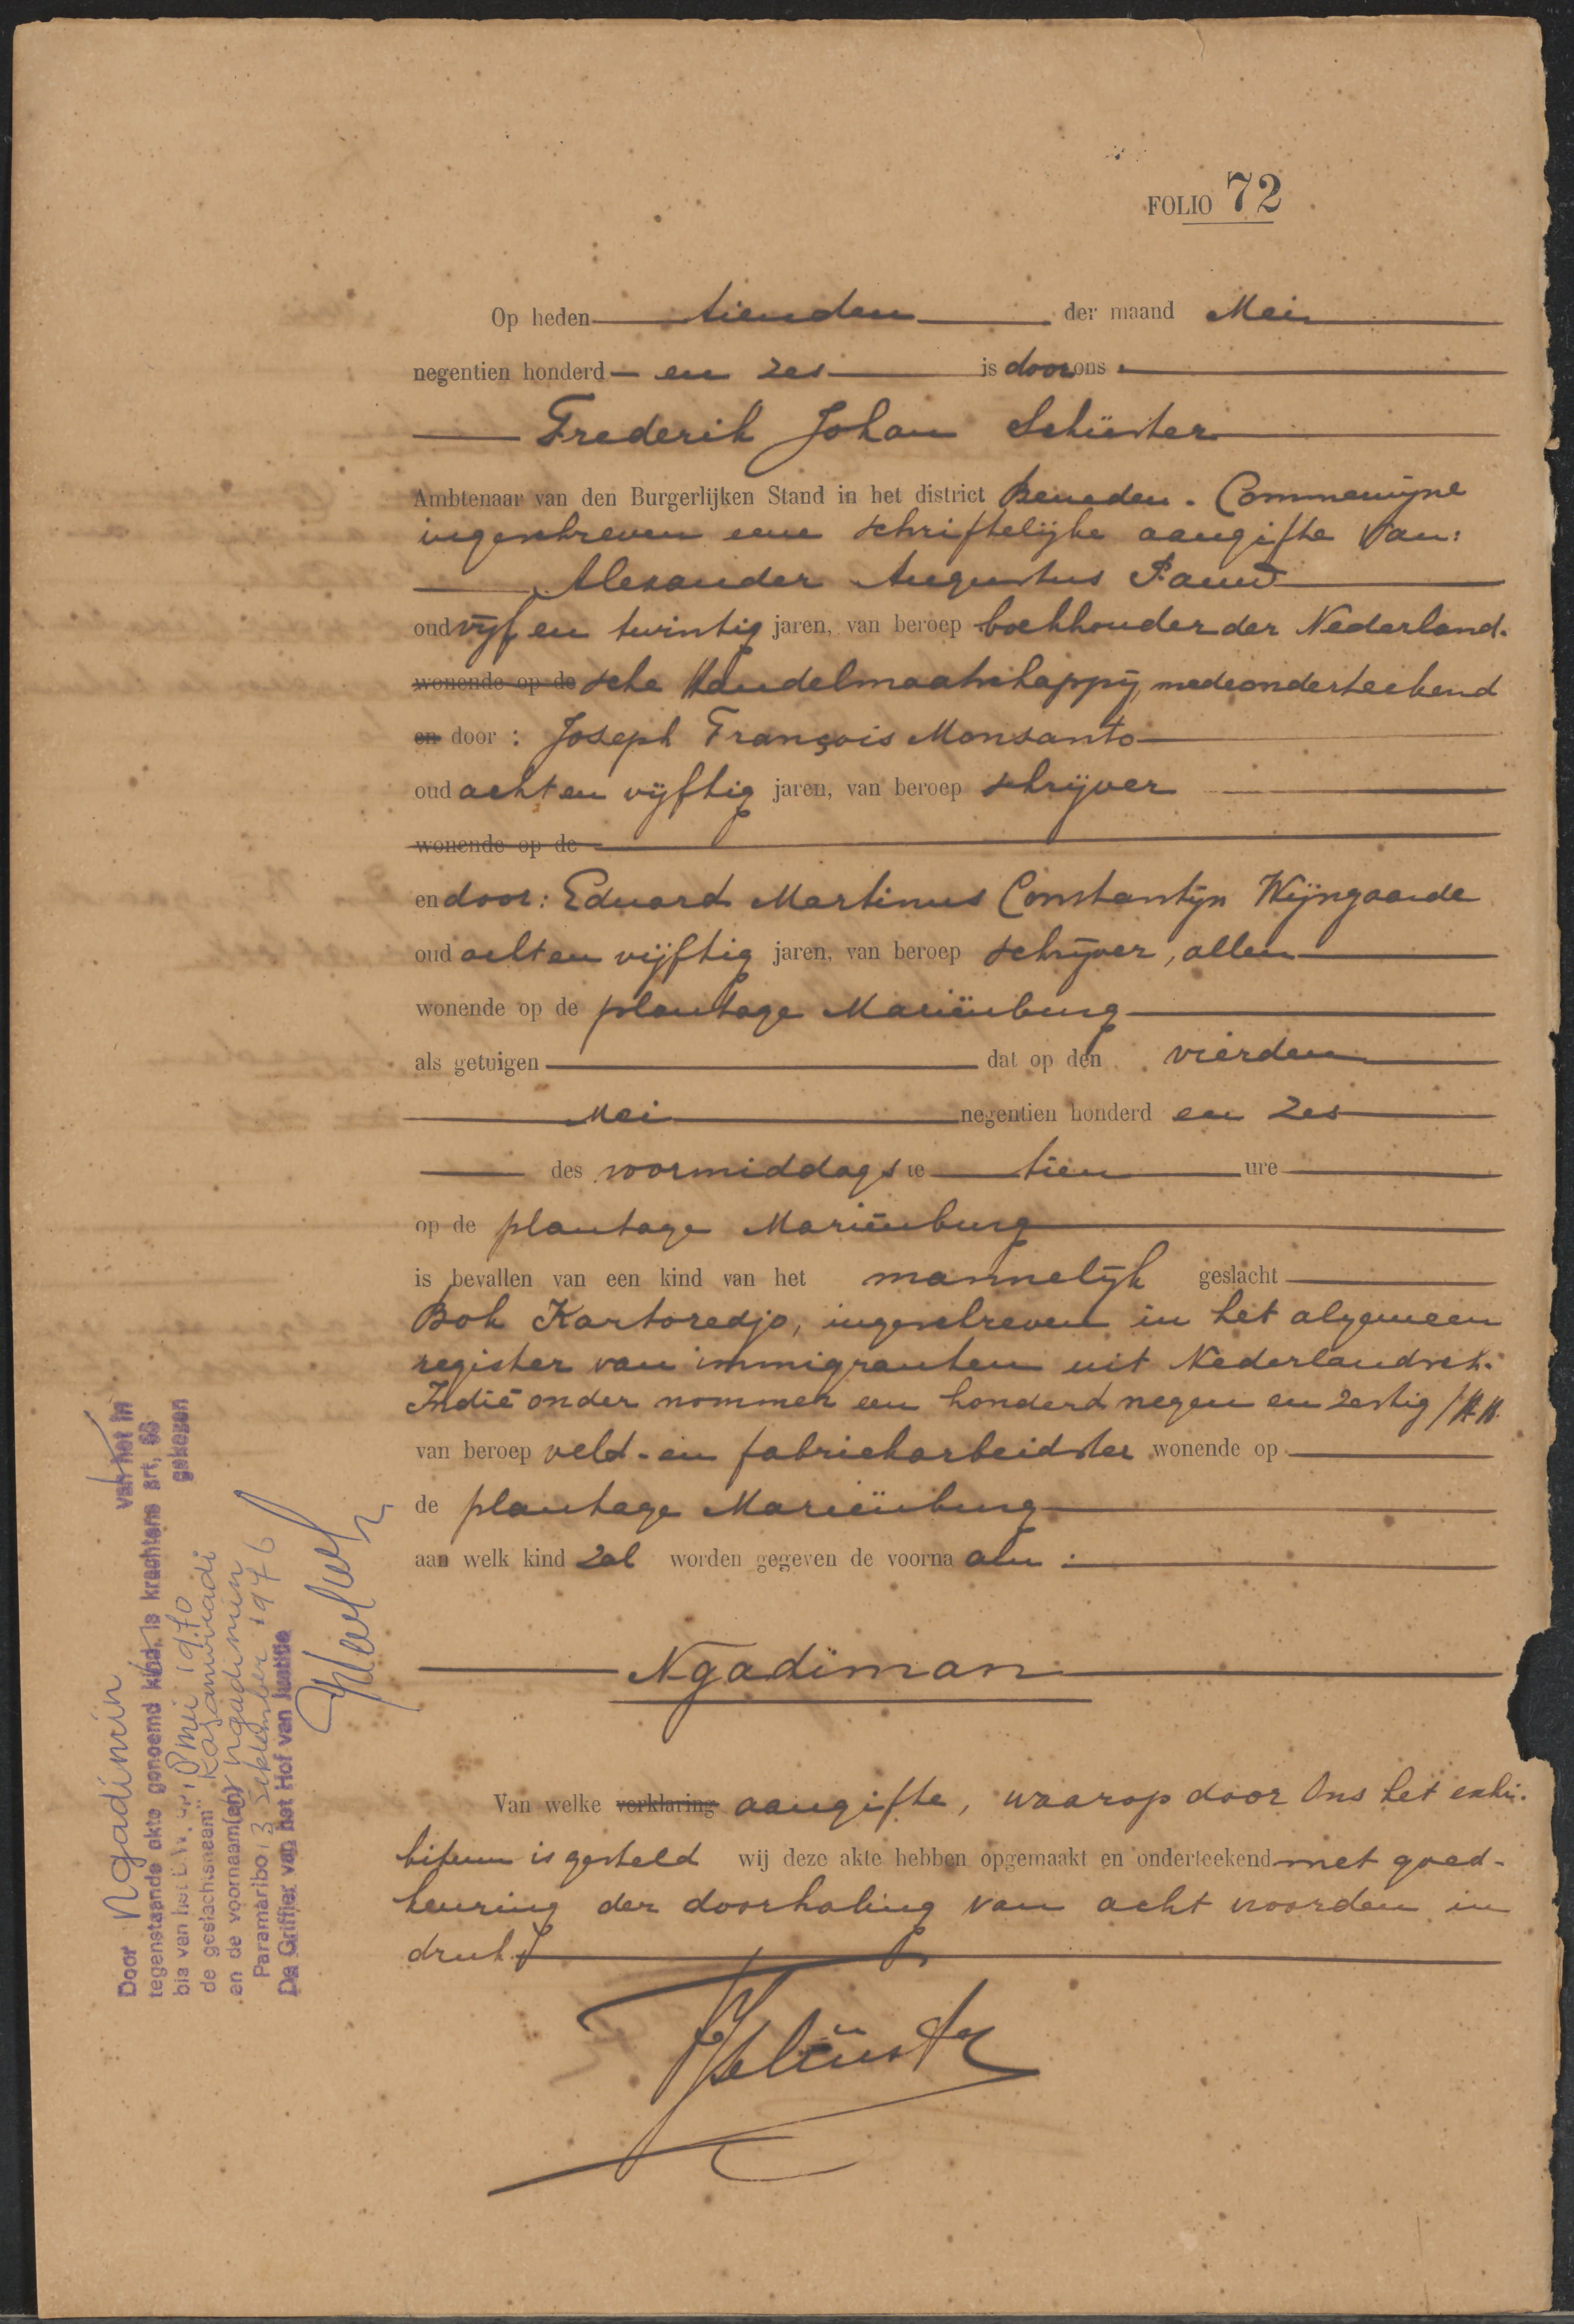 FOLIO 72
Op heden tienden der maand Mei
negentien honderd en zes is door ons
Frederik Johan Schüster
Ambtenaar van den Burgerlijken Stand in het district Beneden-Commewijne
ingeschreven eene schriftelijke aangifte van:
Alexander Augustus Pauw
oud vijf en twintig jaren, van beroep boekhouder der Nederland-
wonende op de sche Handelmaatschappij, medeonderteekend
en door: Joseph François Monsanto
oud acht en vijftig jaren, van beroep schrijver
wonende op de
en door: Eduard Martinus Constantijn Wijngaarde
oud acht en vijftig jaren, van beroep schrijver, allen
wonende op de plantage Mariënburg
als getuigen dat op den vierden
Mei negentien honderd en zes
des voormiddags te tien ure
op de plantage Mariënburg
is bevallen van een kind van het mannelijk geslacht
Bok Kartoredjo, ingeschreven in het algemeen
register van immigranten uit Nederlandsch-
Indië onder nommer een honderd negen en zestig /HH.
van beroep veld- en fabriekarbeidster wonende op
de plantage Mariënburg
aan welk kind zal worden gegeven de voornaam:
Ngadiman
Van welke verklaring aangifte, waarop door Ons het exhi-
bitum is gesteld wij deze akte hebben opgemaakt en onderteekend met goed-
keuring der doorhaling van acht woorden in
druk.
Schüster
Door Ngadimin van het in
tegenstaande akte genoemd kind, is krachtens art. 63
bis van het gekozen
de geslachtsnaam "Kasanwiadi
en de voornaam(en) Ngadimin
Paramaribo, 13 September 1976
De Griffier van het Hof van Justitie